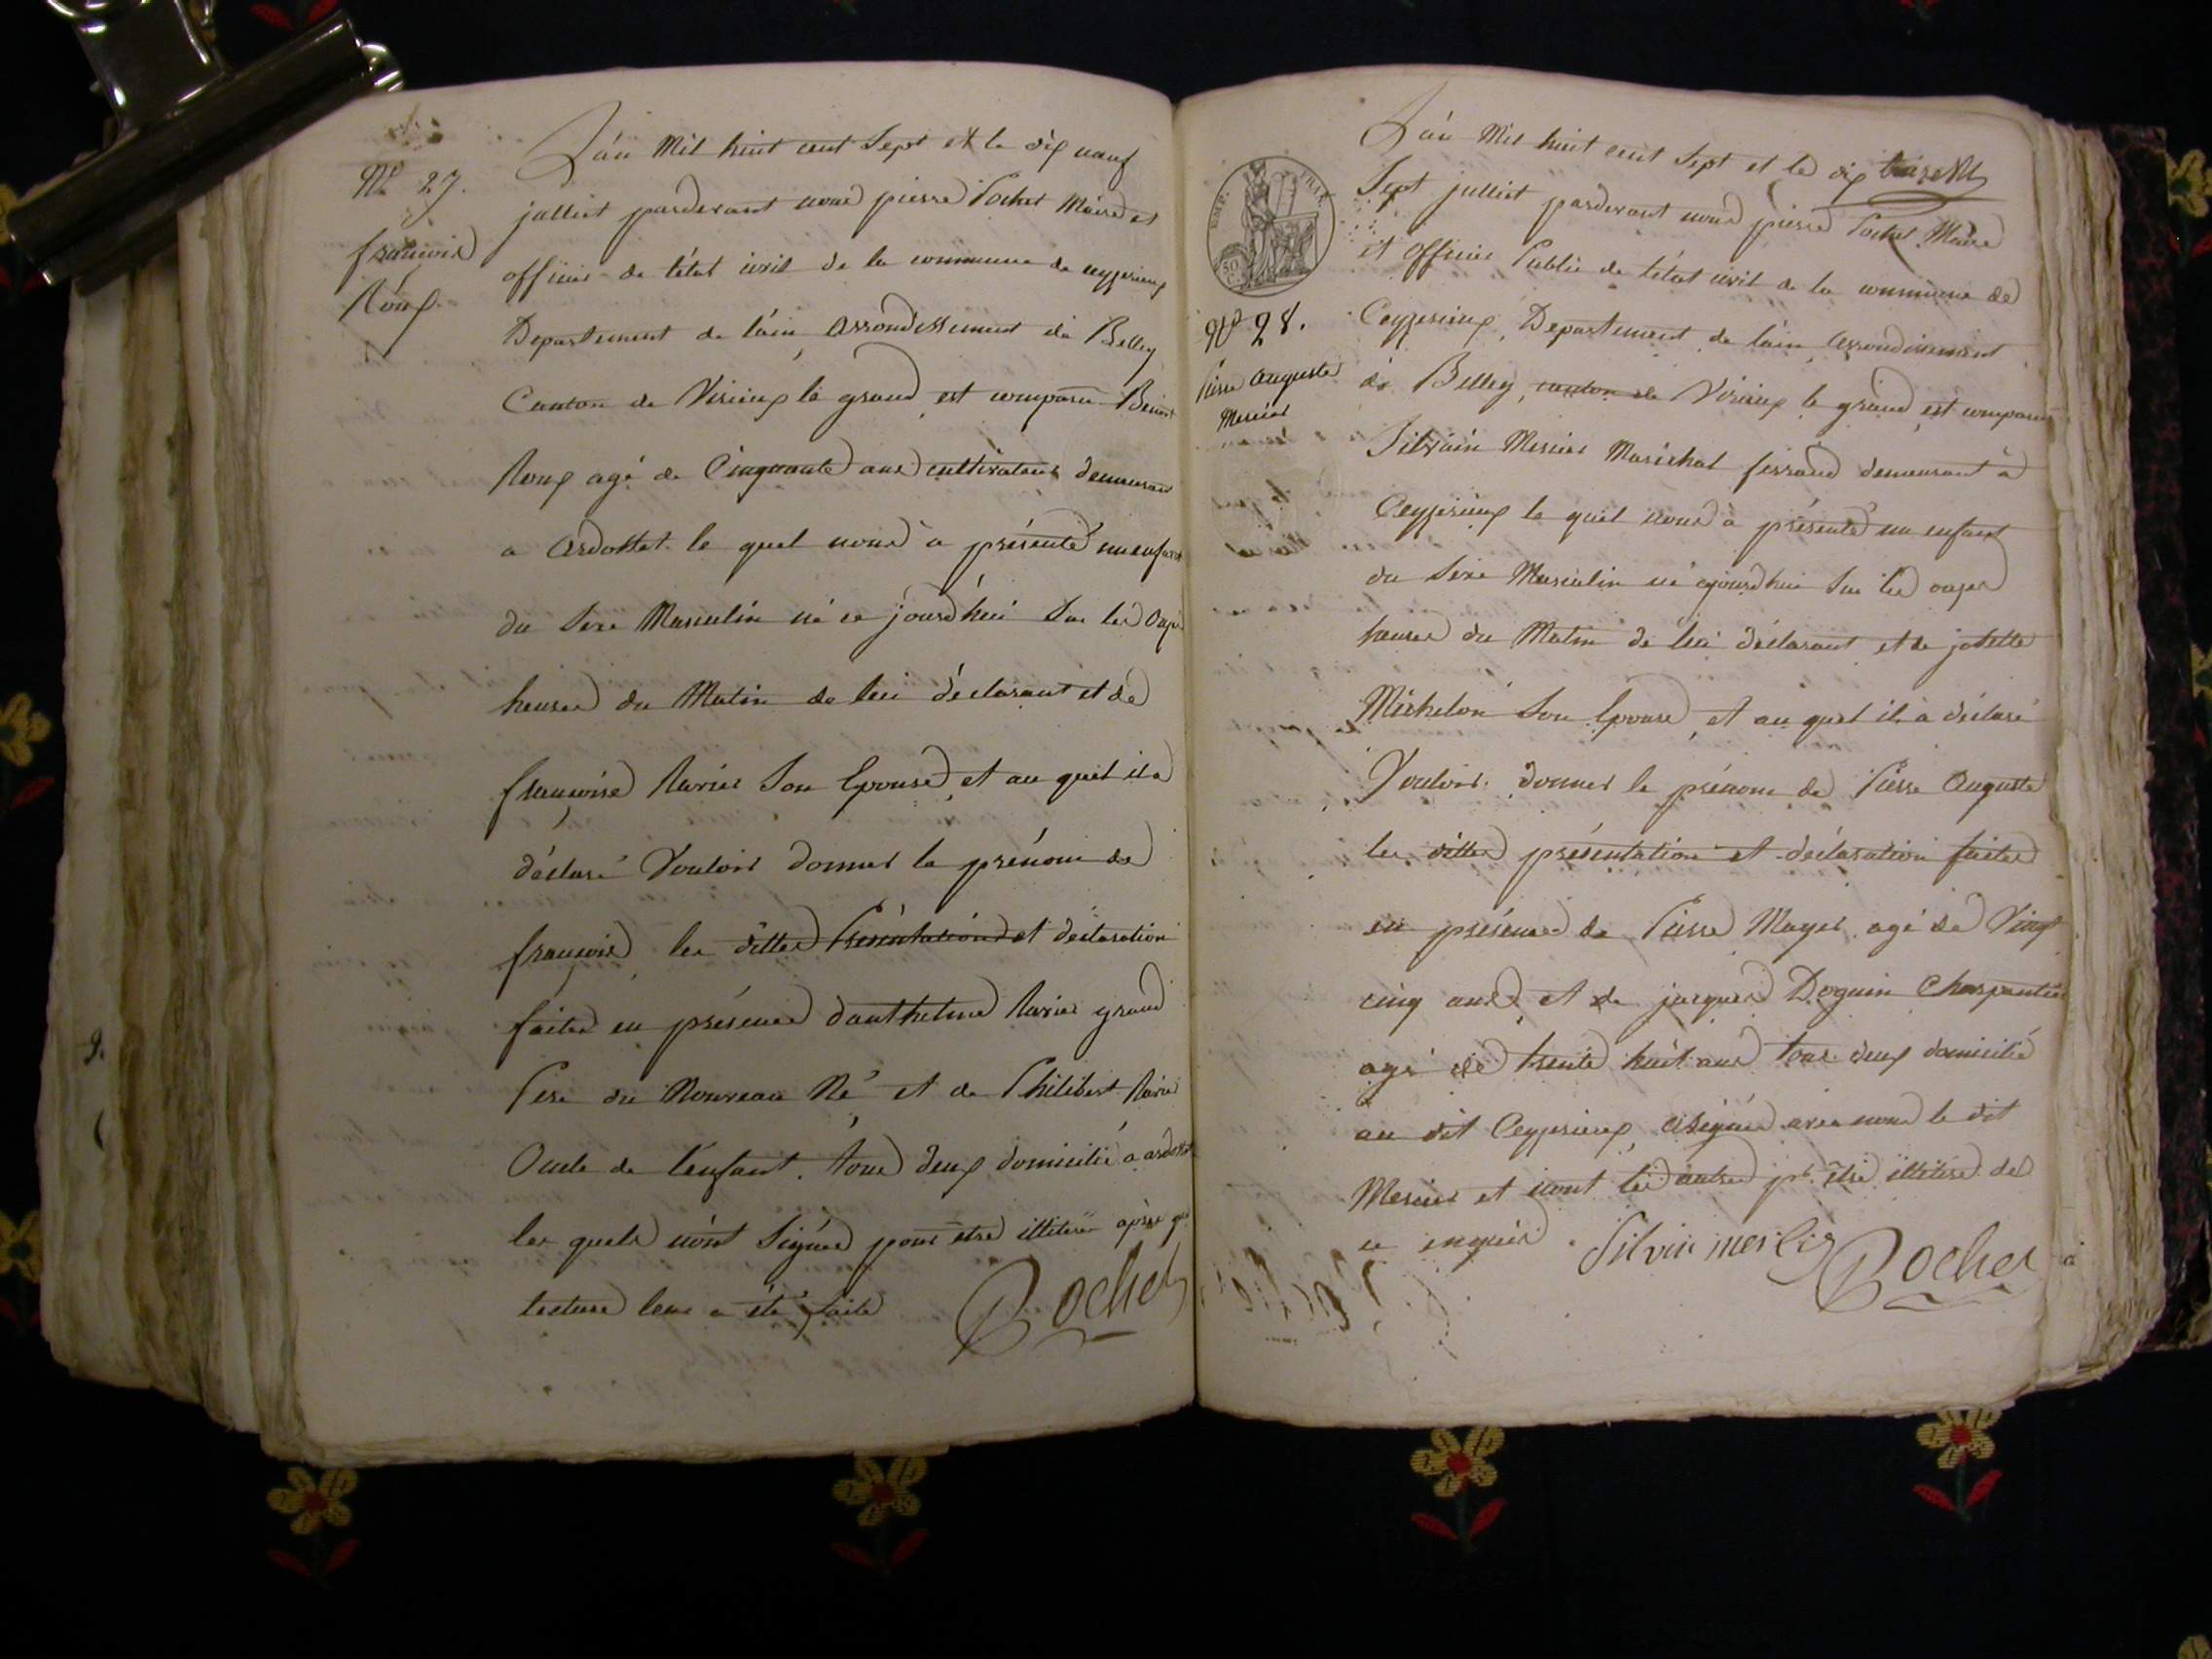 N° 27.
françois
Roux
L'an Mil huit cent Sept et le dix neuf
julliet pardevant nous pierre Pochet Maire et
officier de l'état civil de la commune de ceyzerieux
Departement de l'ain, Arrondissement de Belley
Canton de Virieux le grand, est comparu Benoit
Roux agé de Cinquante ans cultivateur demeurant
a Ardosset le quel nous à présenté un enfant
du Sexe Masculin né ce jourd'hui Sur les Onze
heures du Matin de lui déclarant et de
françoise Ravier Son Epouse, et au quel il a
déclaré Vouloir donner le prénom de
françois, les dittes Présentations et declaration
faites en présence d'anthelme Ravier grand
Pere du Nouveau Né et de Philibert Ravier
Oncle de l'enfant. tous deux domicilié a ardosset
les quels n'ont Signés pour etre illiteré après que
lecture leur a été faite
Pochet
EMP. FRAN.
50
N° 28.
Pierre Auguste
Mercier
L'an Mil huit cent Sept et le dix
Sept julliet pardevant nous pierre Pochet Maire
et Officier Public de l'état civil de la commune de
Ceyzerieux, Departement de l'ain, Arrondissement
de Belley, canton de Virieux le grand, est comparu
Silvain Mercier Maréchal ferrand demeurant à
Ceyzerieux le quel nous à présenté un enfant
du Sexe Masculin né ajourd'hui Sur les onzes
heures du Matin de lui déclarant et de josette
Michelon Son Epouse, et au quel il a déclaré
Vouloir donner le prénom de Pierre Auguste
les dittes présentation et déclaration faites
en présence de Pierre Mayer agé de Vingt
cinq ans, et de jacques Doguin Charpentier
agé de trente huit ans tous deux domicilié
au dit Ceyzerieux, asigné avec nous le dit
Mercier et n'ont les autres pr. etre illitéré de
ce enquis.
Silvin mercier
Pochet